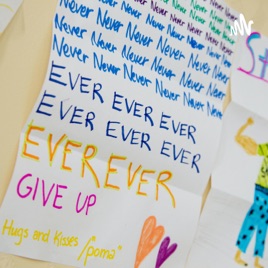 Never Never Never Never
Never Never Never Never Never
Never Never Never Never Never
Never Never Never Never Never
EVER EVER EVER
EVER EVER EVER
EVER EVER
GIVE UP
Hugs and Kisses